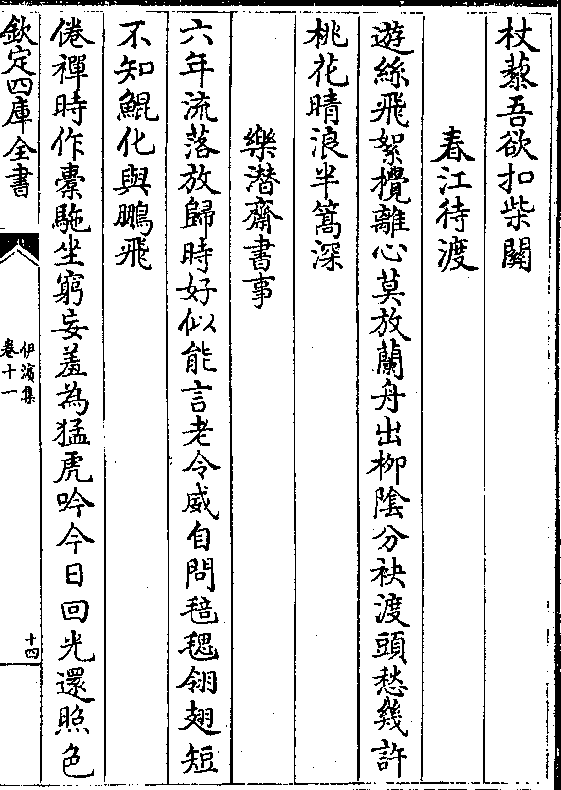 杖藜吾欲扣柴關
春江待渡
遊絲飛絮攪離心莫放蘭舟出柳陰分袂渡頭愁幾許
桃花晴浪半篙深
樂潛齋書事
六年流落放歸時好似能言老令威自問毰毸翎翅短
不知鯤化與鵬飛
倦禪時作橐駞坐窮妄羞為猛虎吟今日回光還照色
欽定四庫全書
伊濱集
卷十一
十四